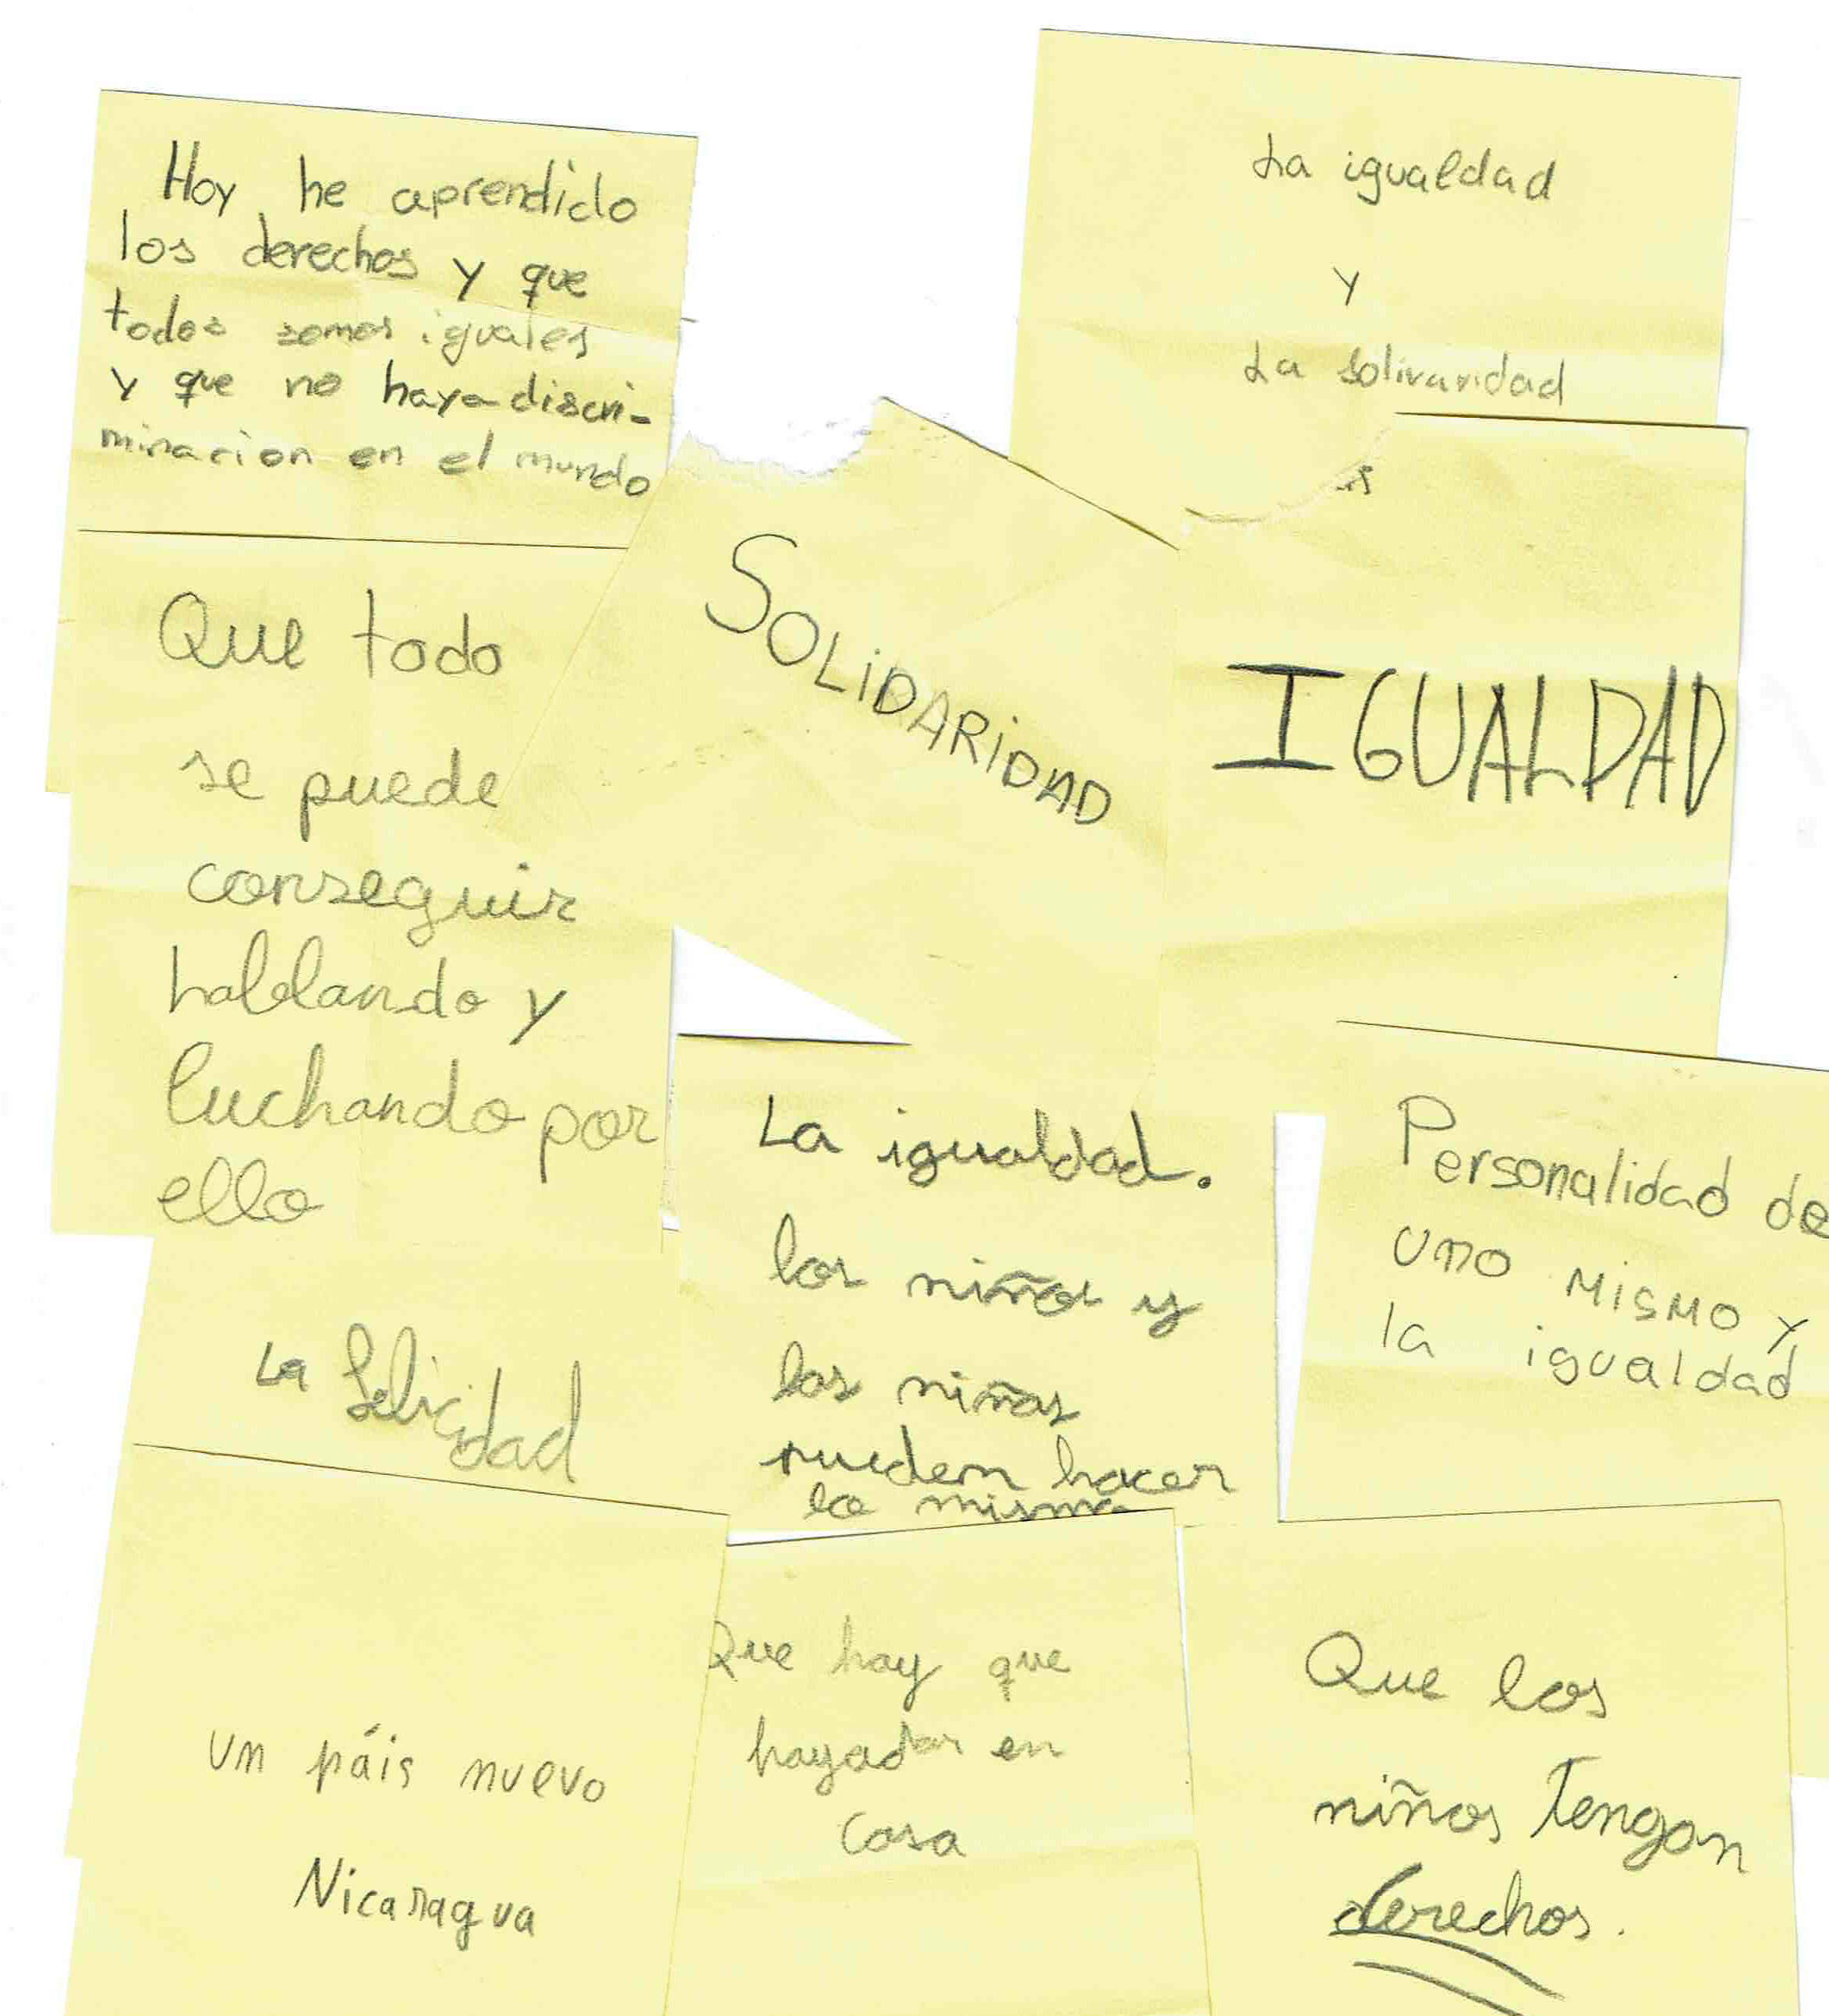 Hoy he aprendido
los derechos y que
todos somos iguales
y que no haya discri-
minacion en el mundo
La igualdad
y
La solivaridad
SOLiDARiDAD
IGUALDAD
Que todo
se puede
conseguir
hablando y
luchando por
ello
La igualdad.
los niños y
las niñas
pueden hacer
lo mismo
Personalidad de
uno mismo y
la igualdad
La felicidad
un páis nuevo
Nicaragua
Que hay que
hayadar en
casa
Que los
niños Tengan
derechos.